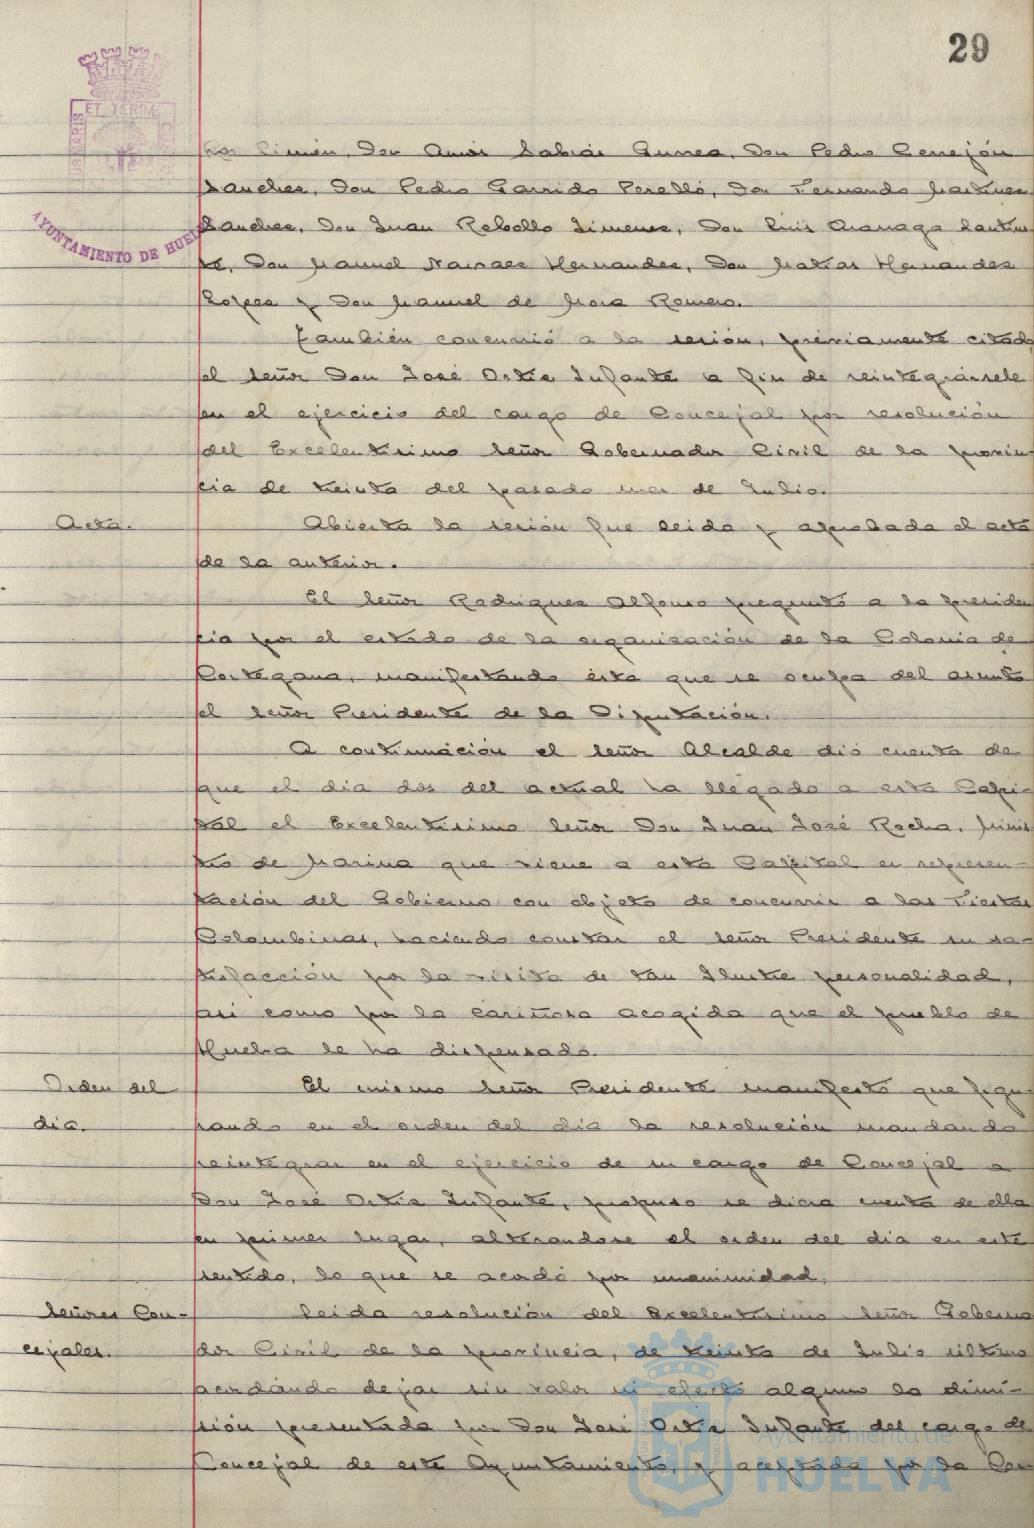 29
ET TERRÆ
AYUNTAMIENTO DE HUELVA
Simón, Don Amós Sabrás Gurrea, Don Pedro Cerrejón
Sanchez, Don Pedro Garrido Perelló, Don Fernando Martinez
Sanchez, Don Juan Rebollo Jimenez, Don Luis
Don Manuel Narvaez Hernandez, Don Matias Hernandez
Lopez y Don Manuel de Mora Romero.
También concurrió a la sesión, préviamente citado
el señor Don José Ortiz Infante a fin de reintegrársele
en el ejercicio del cargo de Concejal por resolución
del Excelentisimo Señor Gobernador Civil de la provin-
cia de treinta del pasado mes de Julio.
Acta.
Abierta la sesión fue leida y aprobada el acta
de la anterior.
El señor Rodriguez Alfonso preguntó a la presiden
cia por el estado de la organización de la Colonia de
Cortegana, manifestando ésta que se ocupa del asunto
el señor Presidente de la Diputación.
A continuación el señor Alcalde dió cuenta de
que el dia dos del actual ha llegado a esta Capi-
tal el Excelentisimo Señor Don Juan José Rocha, Minis
tro de Marina que viene a esta Capital en represen-
tación del Gobierno con objeto de concurrir a las Fiestas
Colombinas, haciendo constar el señor Presidente su sa-
tisfacción por la visita de tan Ilustre personalidad,
asi como por la cariñosa acogida que el pueblo de
Huelva le ha dispensado.
Orden del
dia.
El mismo señor Presidente manifestó que figu-
rando en el orden del dia la resolución mandando
reintegrar en el ejercicio de su cargo de Concejal a
Don José Ortiz Infante, propuso se diera cuenta de ella
en primer lugar, alterandose el orden del dia en este
sentido, lo que se acordó por unanimidad.
Señores Con-
cejales.
Leida resolución del Excelentisimo Señor Goberna
dor Civil de la provincia, de treinta de Julio último
acordando dejar sin valor ni efecto alguno la dimi-
sión presentada por Don José Ortiz Infante del cargo de
Concejal de este Ayuntamiento, y aceptada por la Cor
Ayuntamiento de
HUELVA